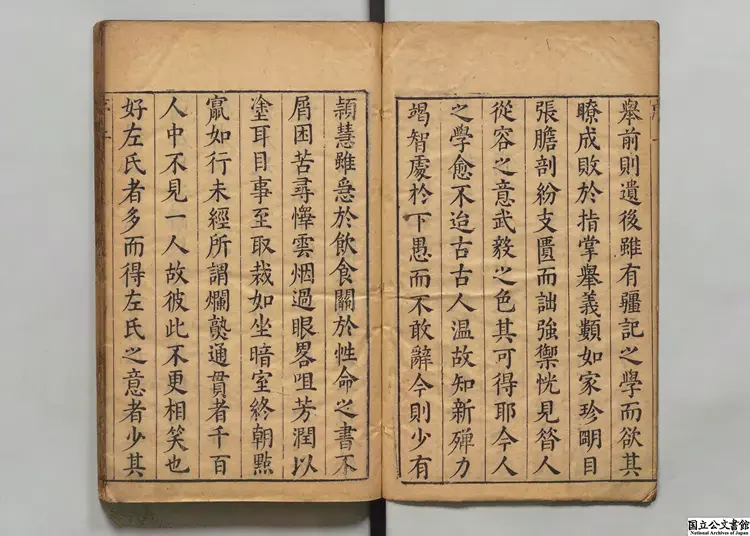 舉前則遺後雖有疆記之學而欲其
瞭成敗於指掌舉義類如家珍明目
張膽剖紛支匱而詘強禦恍見昝人
從容之意武毅之色其可得耶今人
之學愈不迨古古人温故知新殫力
竭智處於下愚而不敢辭今則少有
頴慧雖急於飲食關於性命之書不
屑困苦尋懌雲烟過眼畧咀芳潤以
塗耳目事至取裁如坐暗室終朝㸃
鼠如行未經所謂爛熟通貫者千百
人中不見一人故彼此不更相笑也
好左氏者多而得左氏之意者少其
国立公文書館
National Archives of Japan